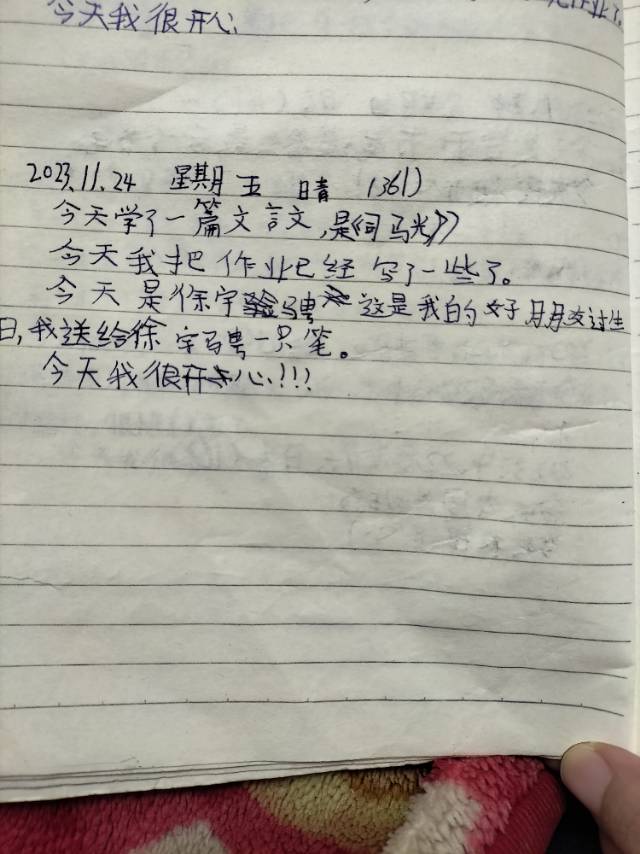 今天我很开心
作业了,
2023.11.24 星期五 晴 (361)
今天学了一篇文言文,是《司马光》
今天我把作业已经写了一些了。
今天是徐宇骋 这是我的好朋友过生
日,我送给徐宇骋一只笔。
今天我很开心!!!